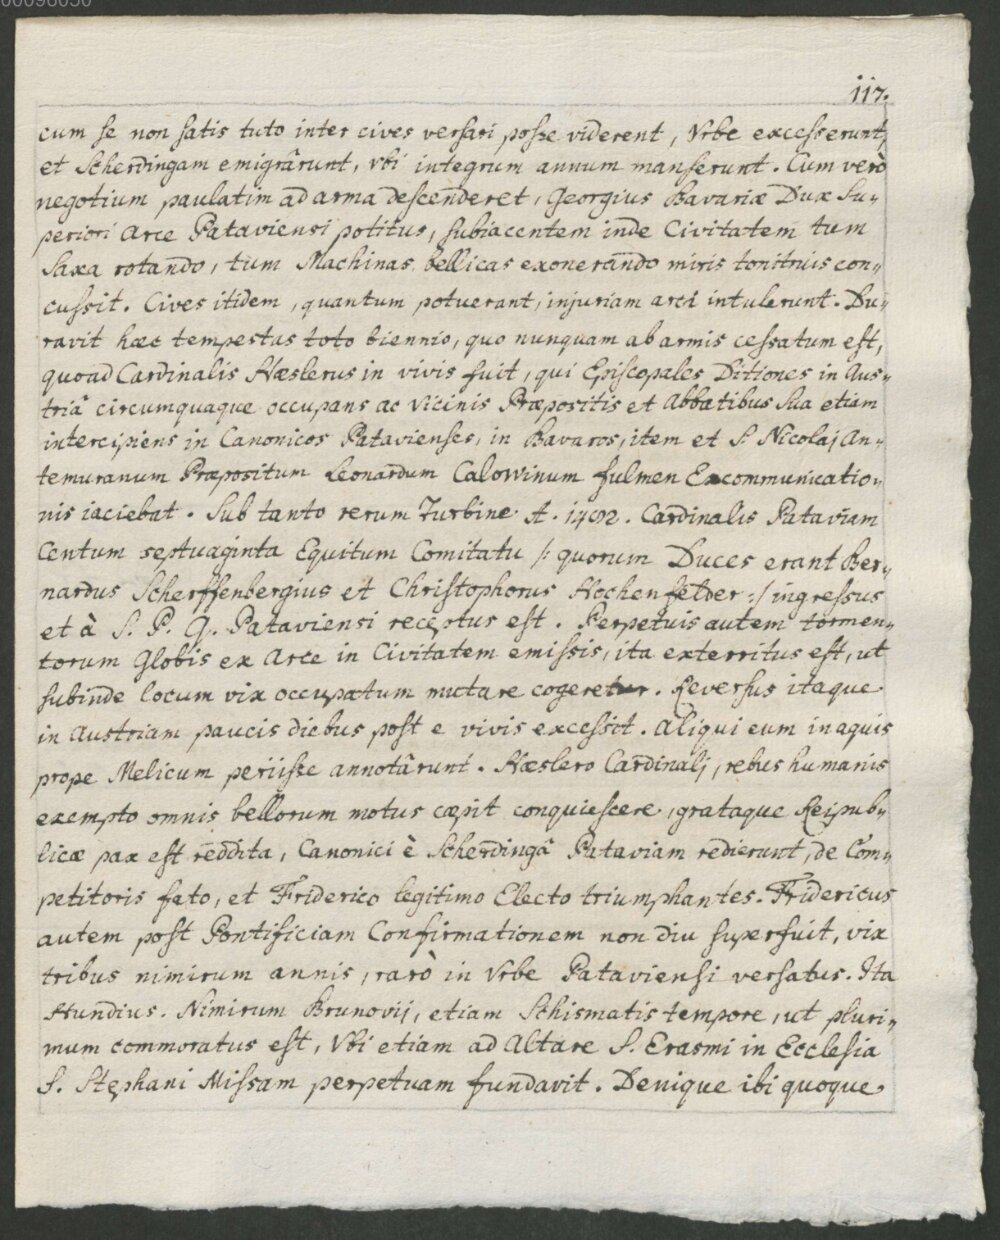 00098050
117.
cum se non satis tuto inter cives versari posse viderent, Vrbe excesserunt,
et Scherdingam emigrârunt, vbi integrum annum manserunt. Cum verò
negotium paulatim ad arma descenderet, Georgius Bavariæ Dux Su„
periori Arce Pataviensi potitus, subiacentem inde Civitatem tum
saxa rotando, tum Machinas bellicas exonerando miris tonitruis con„
cussit. Cives itidem, quantum potuerant, injuriam arci intulerunt. Du„
ravit hæc tempestas toto biennio, quo nunquam ab armis cessatum est,
quoad Cardinalis Hæslerus in vivis fuit, qui Episcopales Ditiones in Aus„
triâ circumquaque occupans ac Vicinis Præpositis et Abbatibus sua etiam
intercipiens in Canonicos Patavienses, in Bavaros, item et S. Nicolaj An„
temuranum Præpositum Leonardum Calowinum fulmen Excommunicatio„
nis iaciebat. Sub tanto rerum Turbine A. Cardinalis Pataviam
Centum septuaginta Equitum Comitatu /: quorum Duces erant Ber„
nardus Scherffenbergius et Christophorus Hochenfelder :/ ingressus
et à S. P. Q. Pataviensi receptus est. Perpetuis autem tormen„
torum Globis ex Arce in Civitatem emissis, ita exterritus est, ut
subinde locum vix occupatum mutare cogeretur. Reversus itaque
in Austriam paucis diebus post e vivis excessit. Aliqui eum in aquis
prope Melicum periisse annotârunt. Hæslero Cardinalj, rebus humanis
exempto omnis bellorum motus cæpit conquiescere, grataque Reipub„
licæ pax est reddita, Canonici è Scherdingâ Pataviam redierunt, de Com„
petitoris fato, et Friderico legitimo Electo triumphantes. Fridericus
autem post Pontificiam Confirmationem non diu superfuit, vix
tribus nimirum annis, rarò in Vrbe Pataviensi versatus. Ita
Hundius. Nimirum Brunovij, etiam Schismatis tempore, ut pluri„
mum commoratus est, Vbi etiam ad Altare S. Erasmi in Ecclesia
S. Stephani Missam perpetuam fundavit. Denique ibi quoque